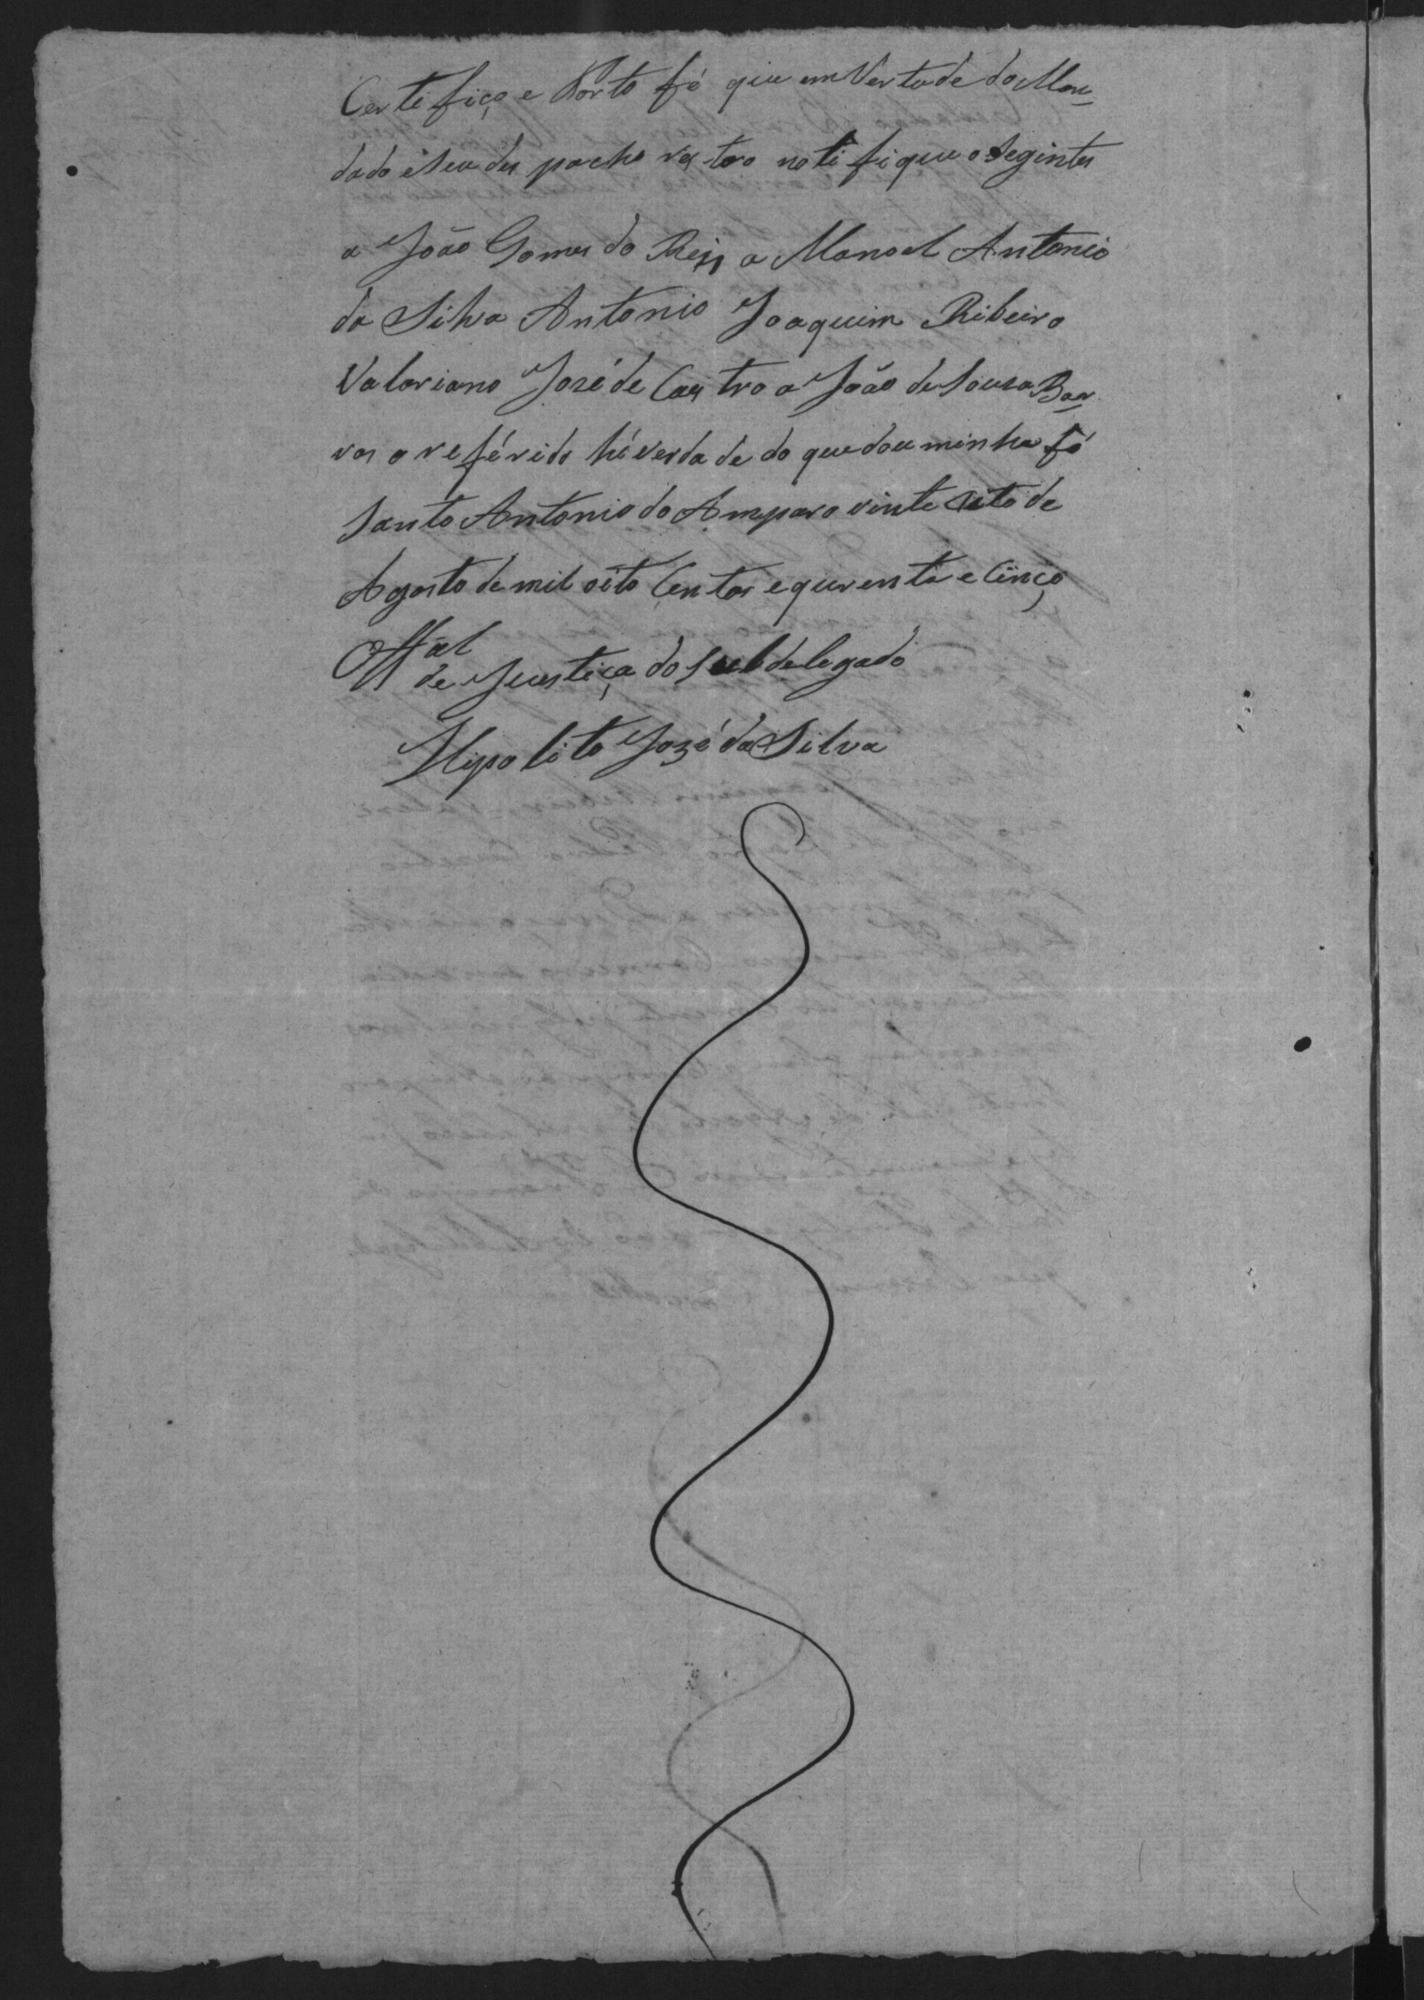 Certifiço e Porto fé que em Vertude do Man-
dado e seu des pacho retro notifique o seginter
a João Gomes do Reis a Manoel Antonio
da Silva Antonio Joaquim Ribeiro
Valeriano José de Castro a João de Sousa Bar-
ros o referido hé verdade do que dou minha fé
Santo Antonio do Amparo vinte outo de
Agosto de mil oito Centos e qurenta e Cinço
Offal
de Justiça do Subdelegado
Hipolito José da Silva